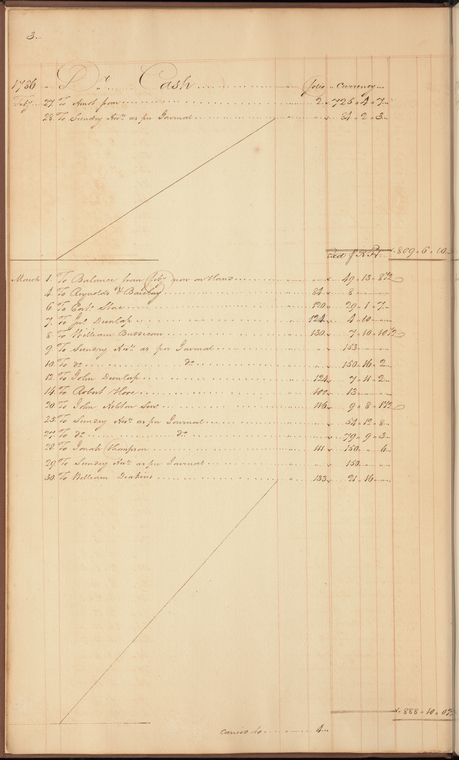 3
1786 Dr Cash folio currency
Feby 27 To Amot from 2 725 4 7
28 To Sundry Accts as per Journal 84 2 3
809 6 10
March 1 To Balance from Feby now on Hand 49 13
4 To Reynolds & Barclay 84 8
6 To Star 120 29 1 7
7 To Jno Dunlap 124 4 10
8 To William 130 7 10 10½
9 To Sundry Accts as per Journal 153
10 To do do 150 16 2
12 To John Dunlap 124 7 11 2
14 To Robert 13
20 To John Senr 116 9 8 1½
25 To Sundry Accts as per Journal 54 12 8
27 To do do 79 9 3
28 To Jonah Thompson 111 150 6
29 To Sundry Accts as per Journal 150
30 To William Deakins 133 21 16
888 10
carried to 4